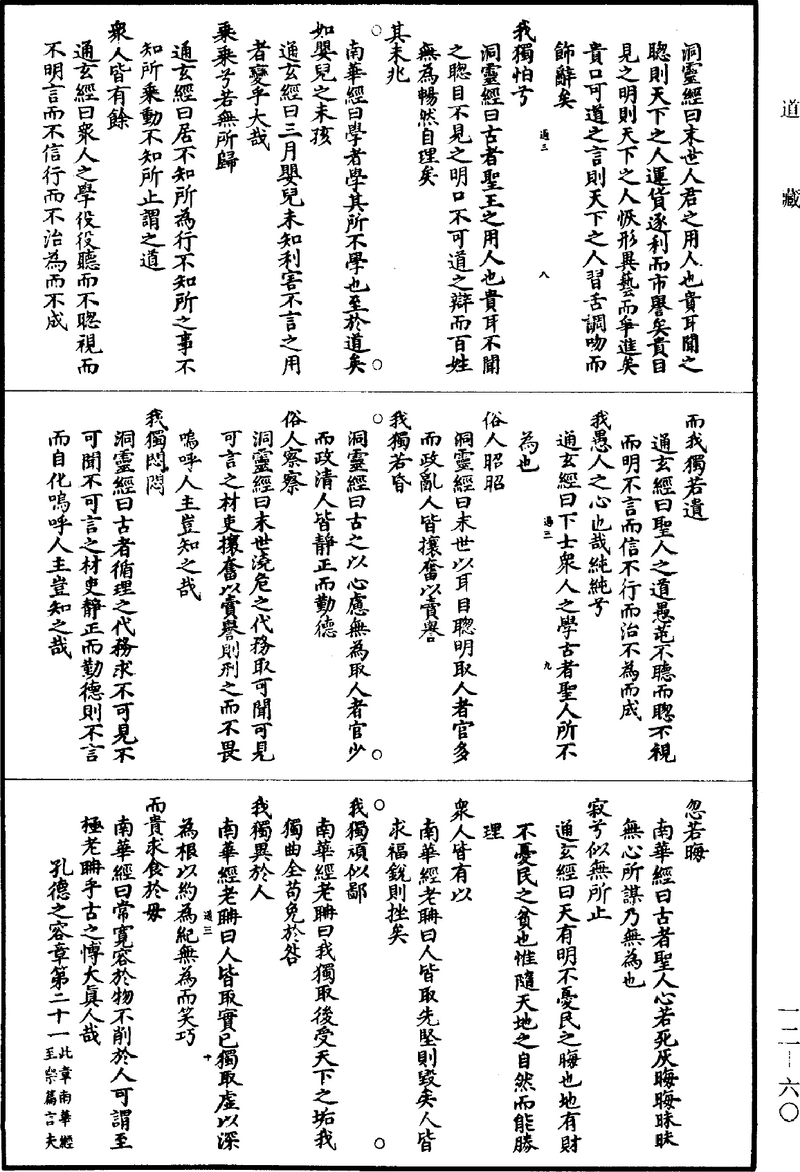 道藏
洞靈經曰末世人君之用人也貴耳聞之
聰則天下之人運貨逐利而市譽矣貴目
見之明則天下之人恢形異藝而爭進矣
貴口可道之言則天下之人習舌調吻而
飾辭矣
過三
八
我獨怕兮
洞靈經曰古者聖王之用人也貴耳不聞
之聰目不見之明口不可道之辯而百姓
無為暢然自理矣
其未兆
南華經曰學者學其所不學也至於道矣
如嬰兒之未孩
通玄經曰三月嬰兒未知利害不言之用
者變乎大哉
乘乘兮若無所歸
通玄經曰居不知所為行不知所之事不
知所乘動不知所止謂之道
衆人皆有餘
通玄經曰衆人之學役役聽而不聰視而
不明言而不信行而不治為而不成
而我獨若遺
通玄經曰聖人之道愚芚不聽而聰不視
而明不言而信不行而治不為而成
我愚人之心也哉純純兮
通玄經曰下士衆人之學古者聖人所不
為也
過三
九
俗人昭昭
洞靈經曰末世以耳目聰明取人者官多
而政亂人皆攘奮以賣譽
我獨若昏
洞靈經曰古之以心慮無為取人者官少
而政清人皆靜正而勤德
俗人察察
洞靈經曰末世澆危之代務取可聞可見
可言之材吏攘奮以賣譽則刑之而不畏
嗚呼人主豈知之哉
我獨悶悶
洞靈經曰古者循理之代務求不可見不
可聞不可言之材吏靜正而勤德則不言
而自化嗚呼人主豈知之哉
忽若晦
南華經曰古者聖人心若死灰晦晦昧昧
無心所謀乃無為也
寂兮似無所止
通玄經曰天有明不憂民之晦也地有財
不憂民之貧也惟隨天地之自然而能勝
理
衆人皆有以
南華經老聃曰人皆取先堅則毀矣人皆
求福銳則挫矣
我獨頑似鄙
南華經老聃曰我獨取後受天下之垢我
獨曲全苟免於咎
我獨異於人
南華經老聃曰人皆取實已獨取虛以深
過三
十
為根以約為紀無為而笑巧
而貴求食於母
南華經曰常寬容於物不削於人可謂至
極老聃乎古之博大眞人哉
孔德之容章第二十一此章南華經至崇篇言夫
一二—六〇